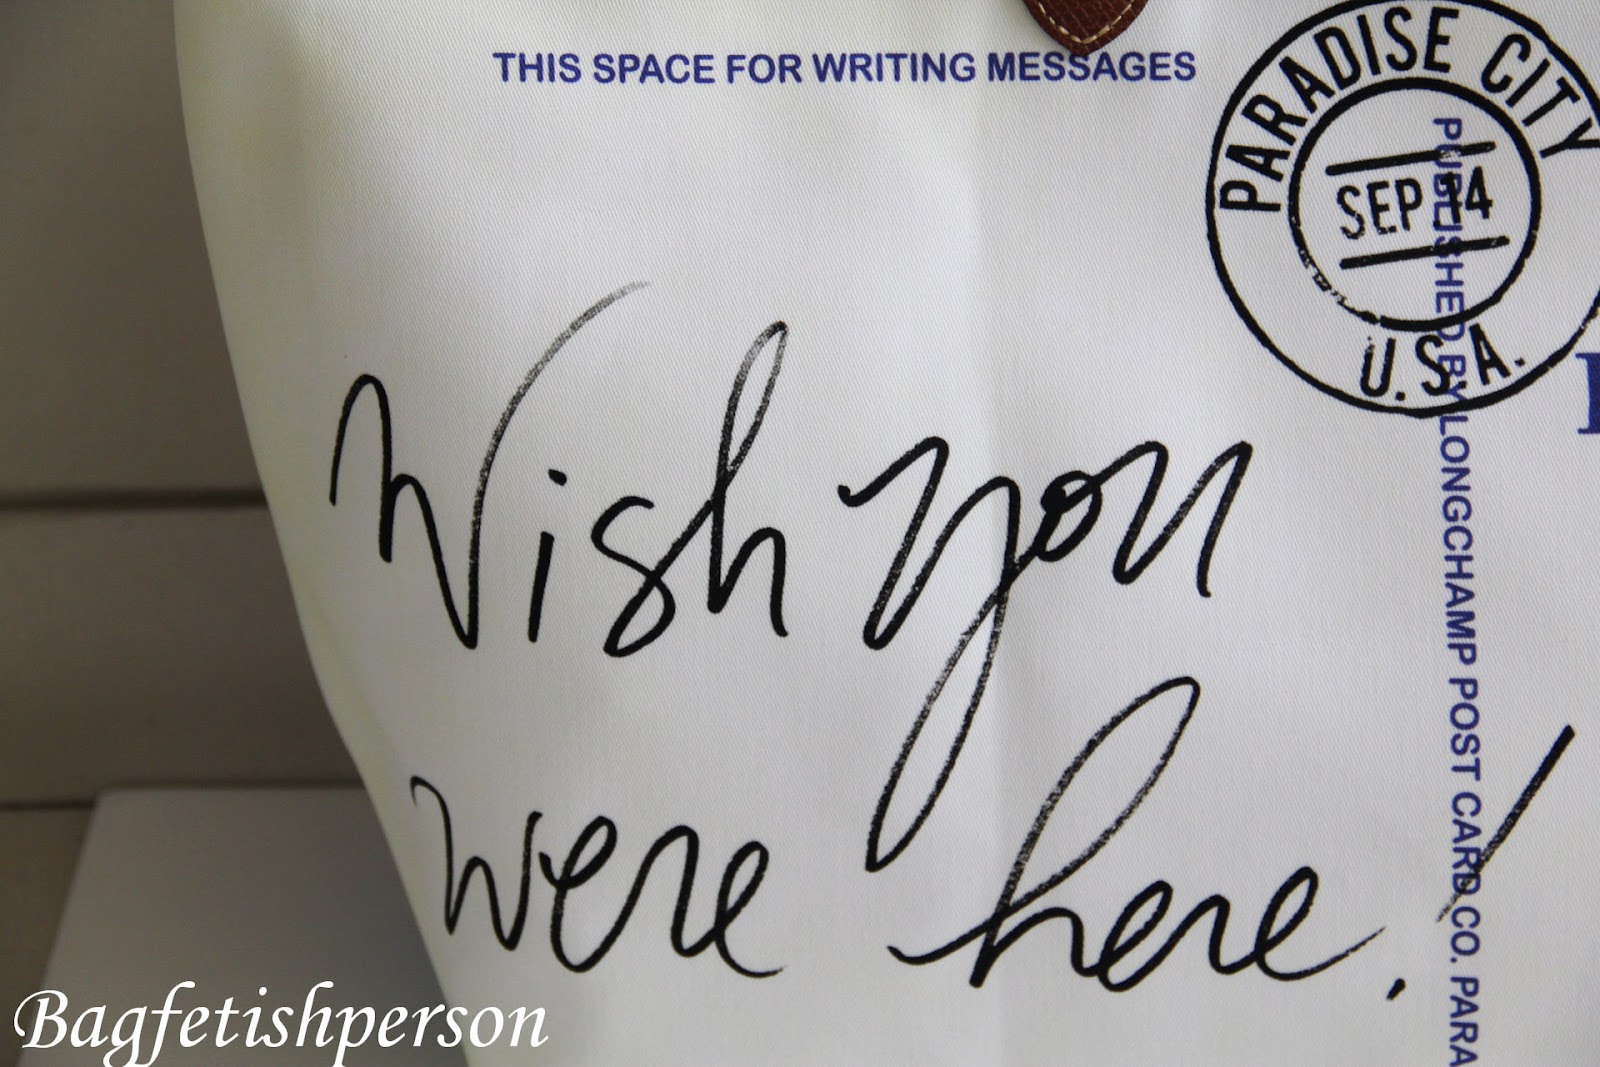 THIS SPACE FOR WRITING MESSAGES
PARADISE CITY
SEP 14
U.S.A.
Wish you
were here!
PUBLISHED BY LONGCHAMP POST CARD CO. PARA
Bagfetishperson